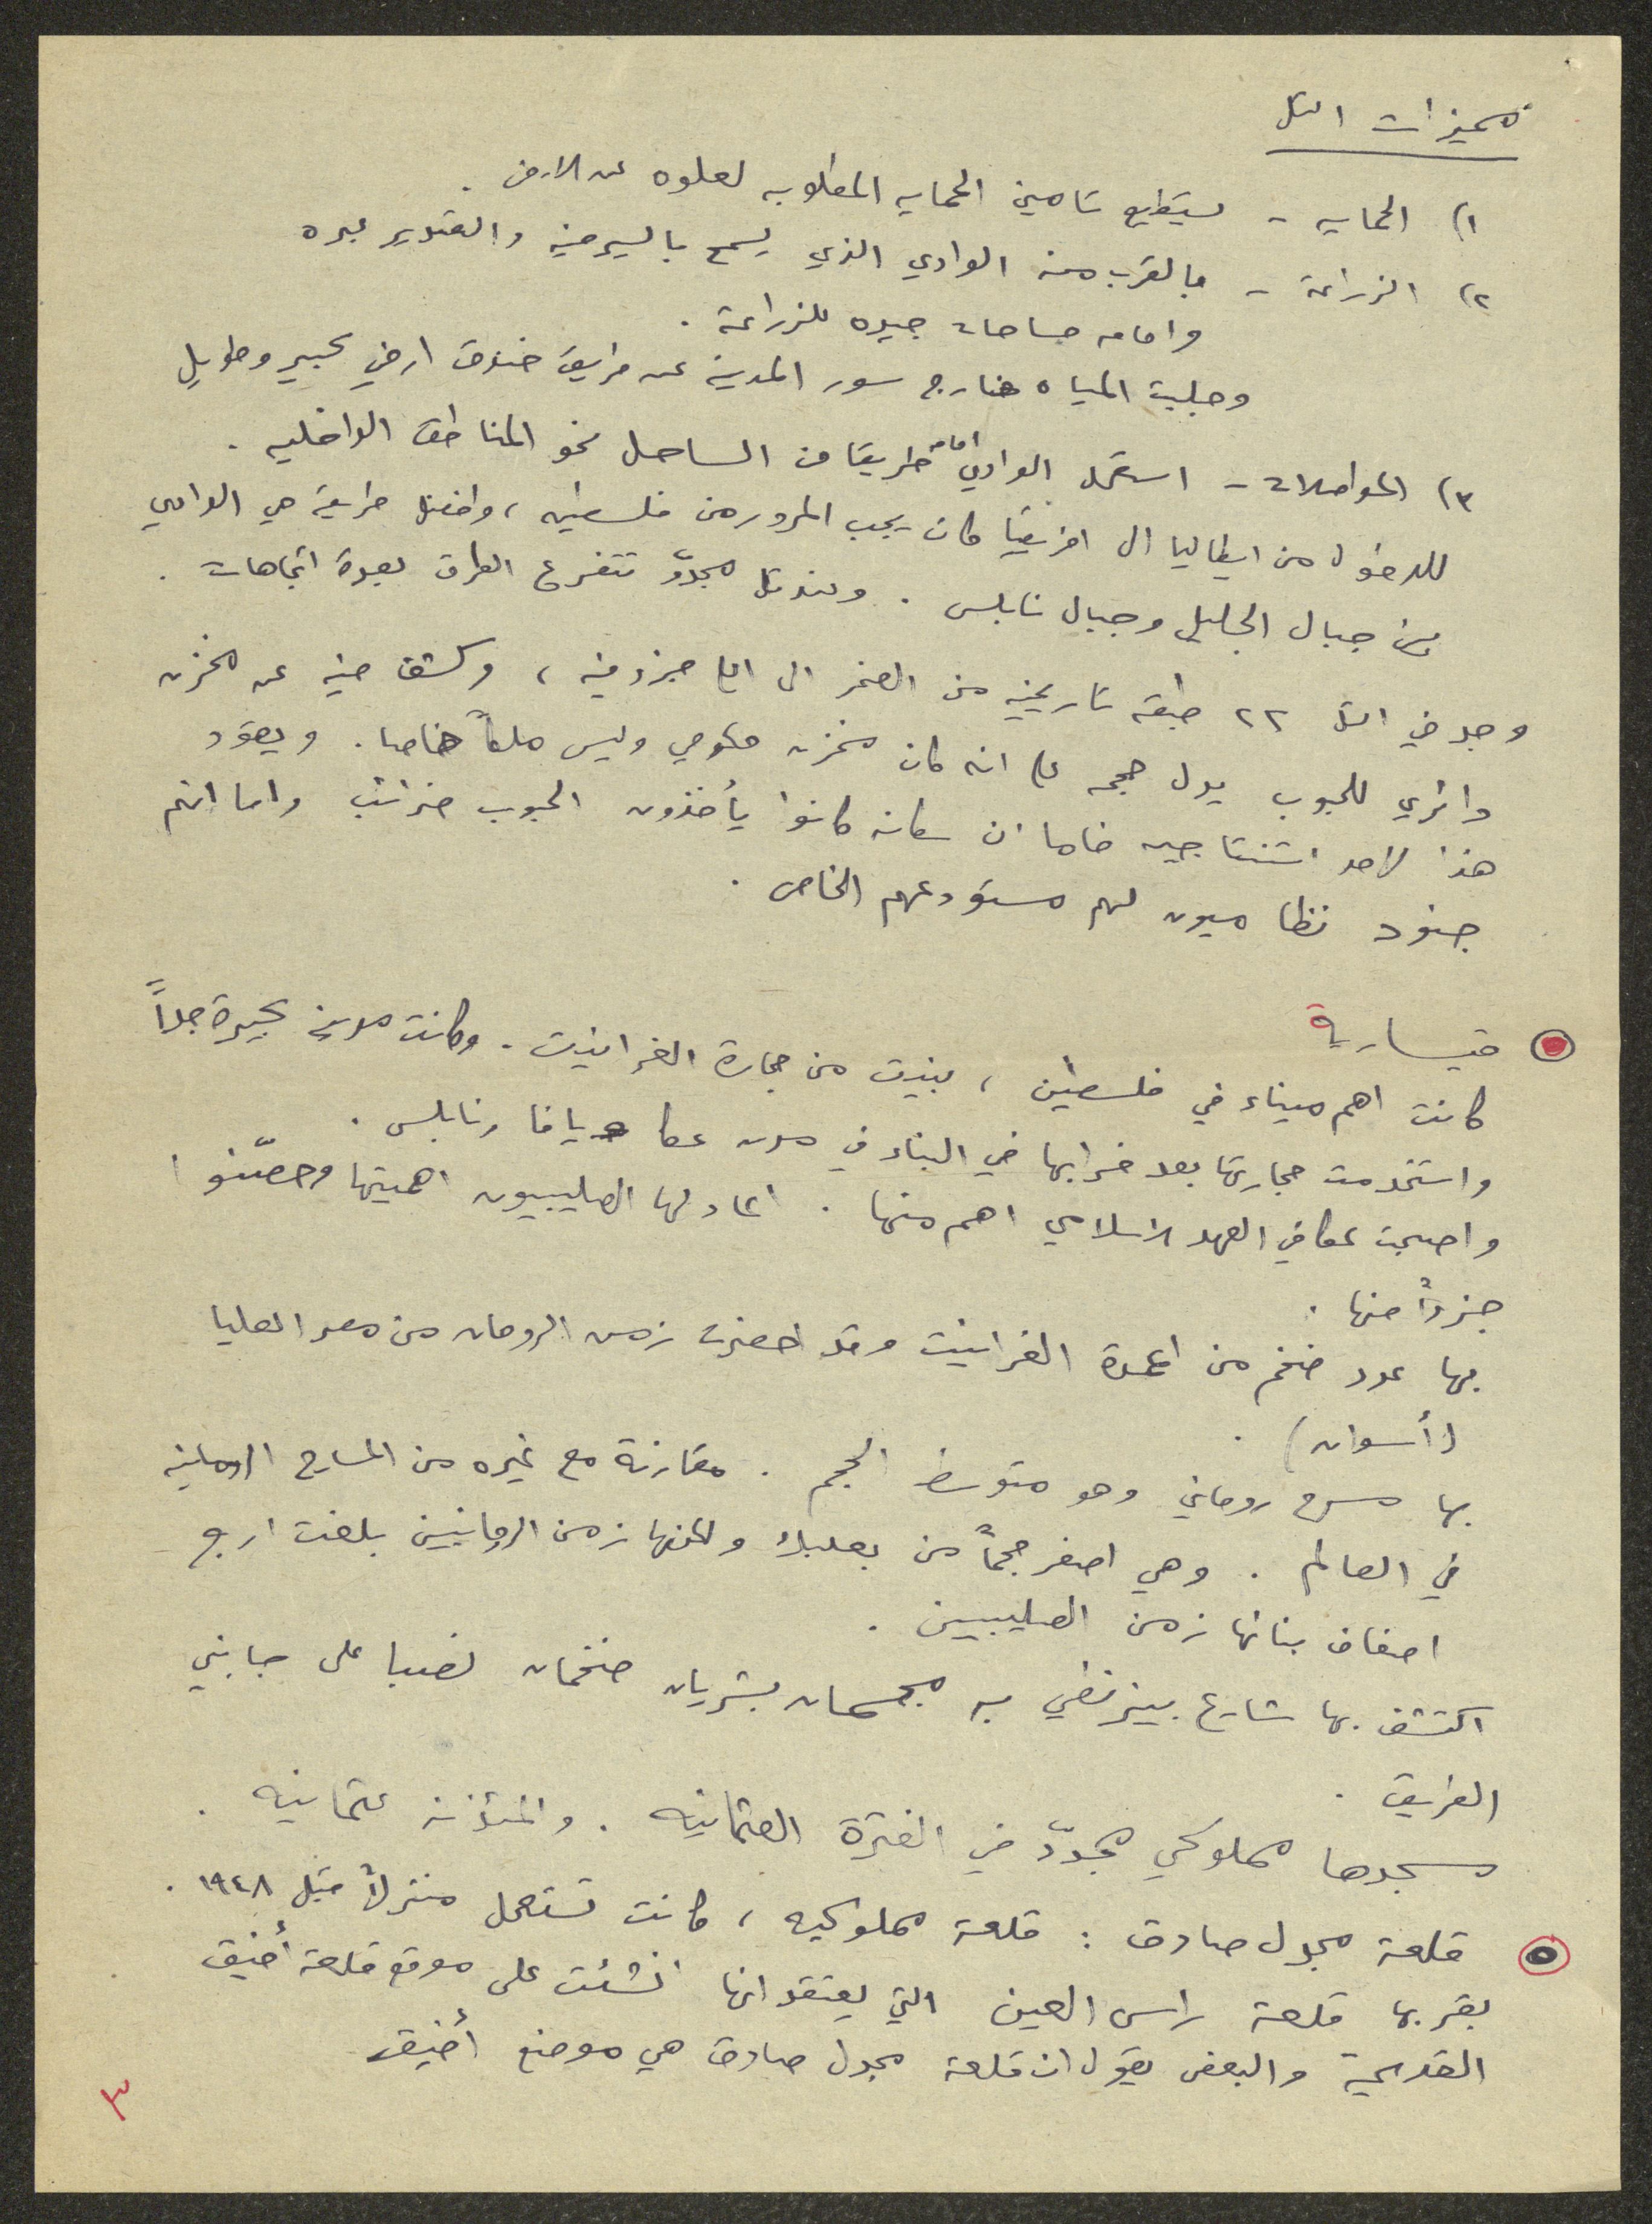 مميزات التل
١) الحمايه - يستطيع تامين الحمايه المطلوبه لعلوه عن الارض .
٢) الزراعة - بالقرب منه الوادي الذي يسمح بالسير فيه والتقدير عبره
وامامه مساحات جيده للزراعة .
وجلبت المياه خارج سور المدينه عن طريق خندق ارضي كبير وطويل
٣) المواصلات - استعمل الوادي امامه طريقا من الساحل نحو المناطق الداخليه .
للدخول من ايطاليا الى افريقيا كان يجب المرور من فلسطين ، وافضل طريقة هي الوادي
بين جبال الجليل وجبال نابلس . وعند تل مجدّو تتفرع الطرق بعدة اتجاهات .
وجد في التل ٢٢ طبقه تاريخيه من الصخر الى اعلى جزء فيه ، وكشف فيه عن مخزن
دائري للحبوب يدل حجمه على انه كان مخزن حكومي وليس ملكاً خاصا . ويعود
هذا لاحد استنتاجين فاما ان سكانه كانوا يأخذون الحبوب ضرائب واما انهم
جنود نظاميون لهم مستودعهم الخاص .
قيسارية
كانت اهم ميناء في فلسطين ، بنيت من حجارة الغرانيت . وكانت مدينة كبيرة جداً
واستخدمت حجارتها بعد خرابها في البناء في مدن عكا ويافا ونابلس .
واصبحت عكا في العهد الاسلامي اهم منها . اعاد لها الصليبيون اهميتها وحصّنوا
جزءاً منها .
بها عدد ضخم من اعمدة الغرانيت وقد احضرت زمن الرومان من مصر العليا
(أسوان) .
بها مسرح روماني وهو متوسط الحجم . مقارنة مع غيره من المسارح الرومانيه
في العالم . وهي اصغر حجماً من بعلبك ولكنها زمن الرومانيين بلغت اربع
اضعاف بنائها زمن الصليبيين .
اكتشف بها شارع بيزنطي به مجسمان بشريان ضخمان نصبا على جانبي
الطريق .
مسجدها مملوكي مجدّد في الفترة العثمانيه . والمئذنه عثمانيه .
قلعة مجدل صادق : قلعة مملوكيه ، كانت تستعمل منزلاً قبل ١٩٤٨ .
بقربها قلعة راس العين التي يعتقد انها انشئت على موقع قلعة أفيق
القديمة والبعض يقول ان قلعة مجدل صادق هي موضع أفيق
٣